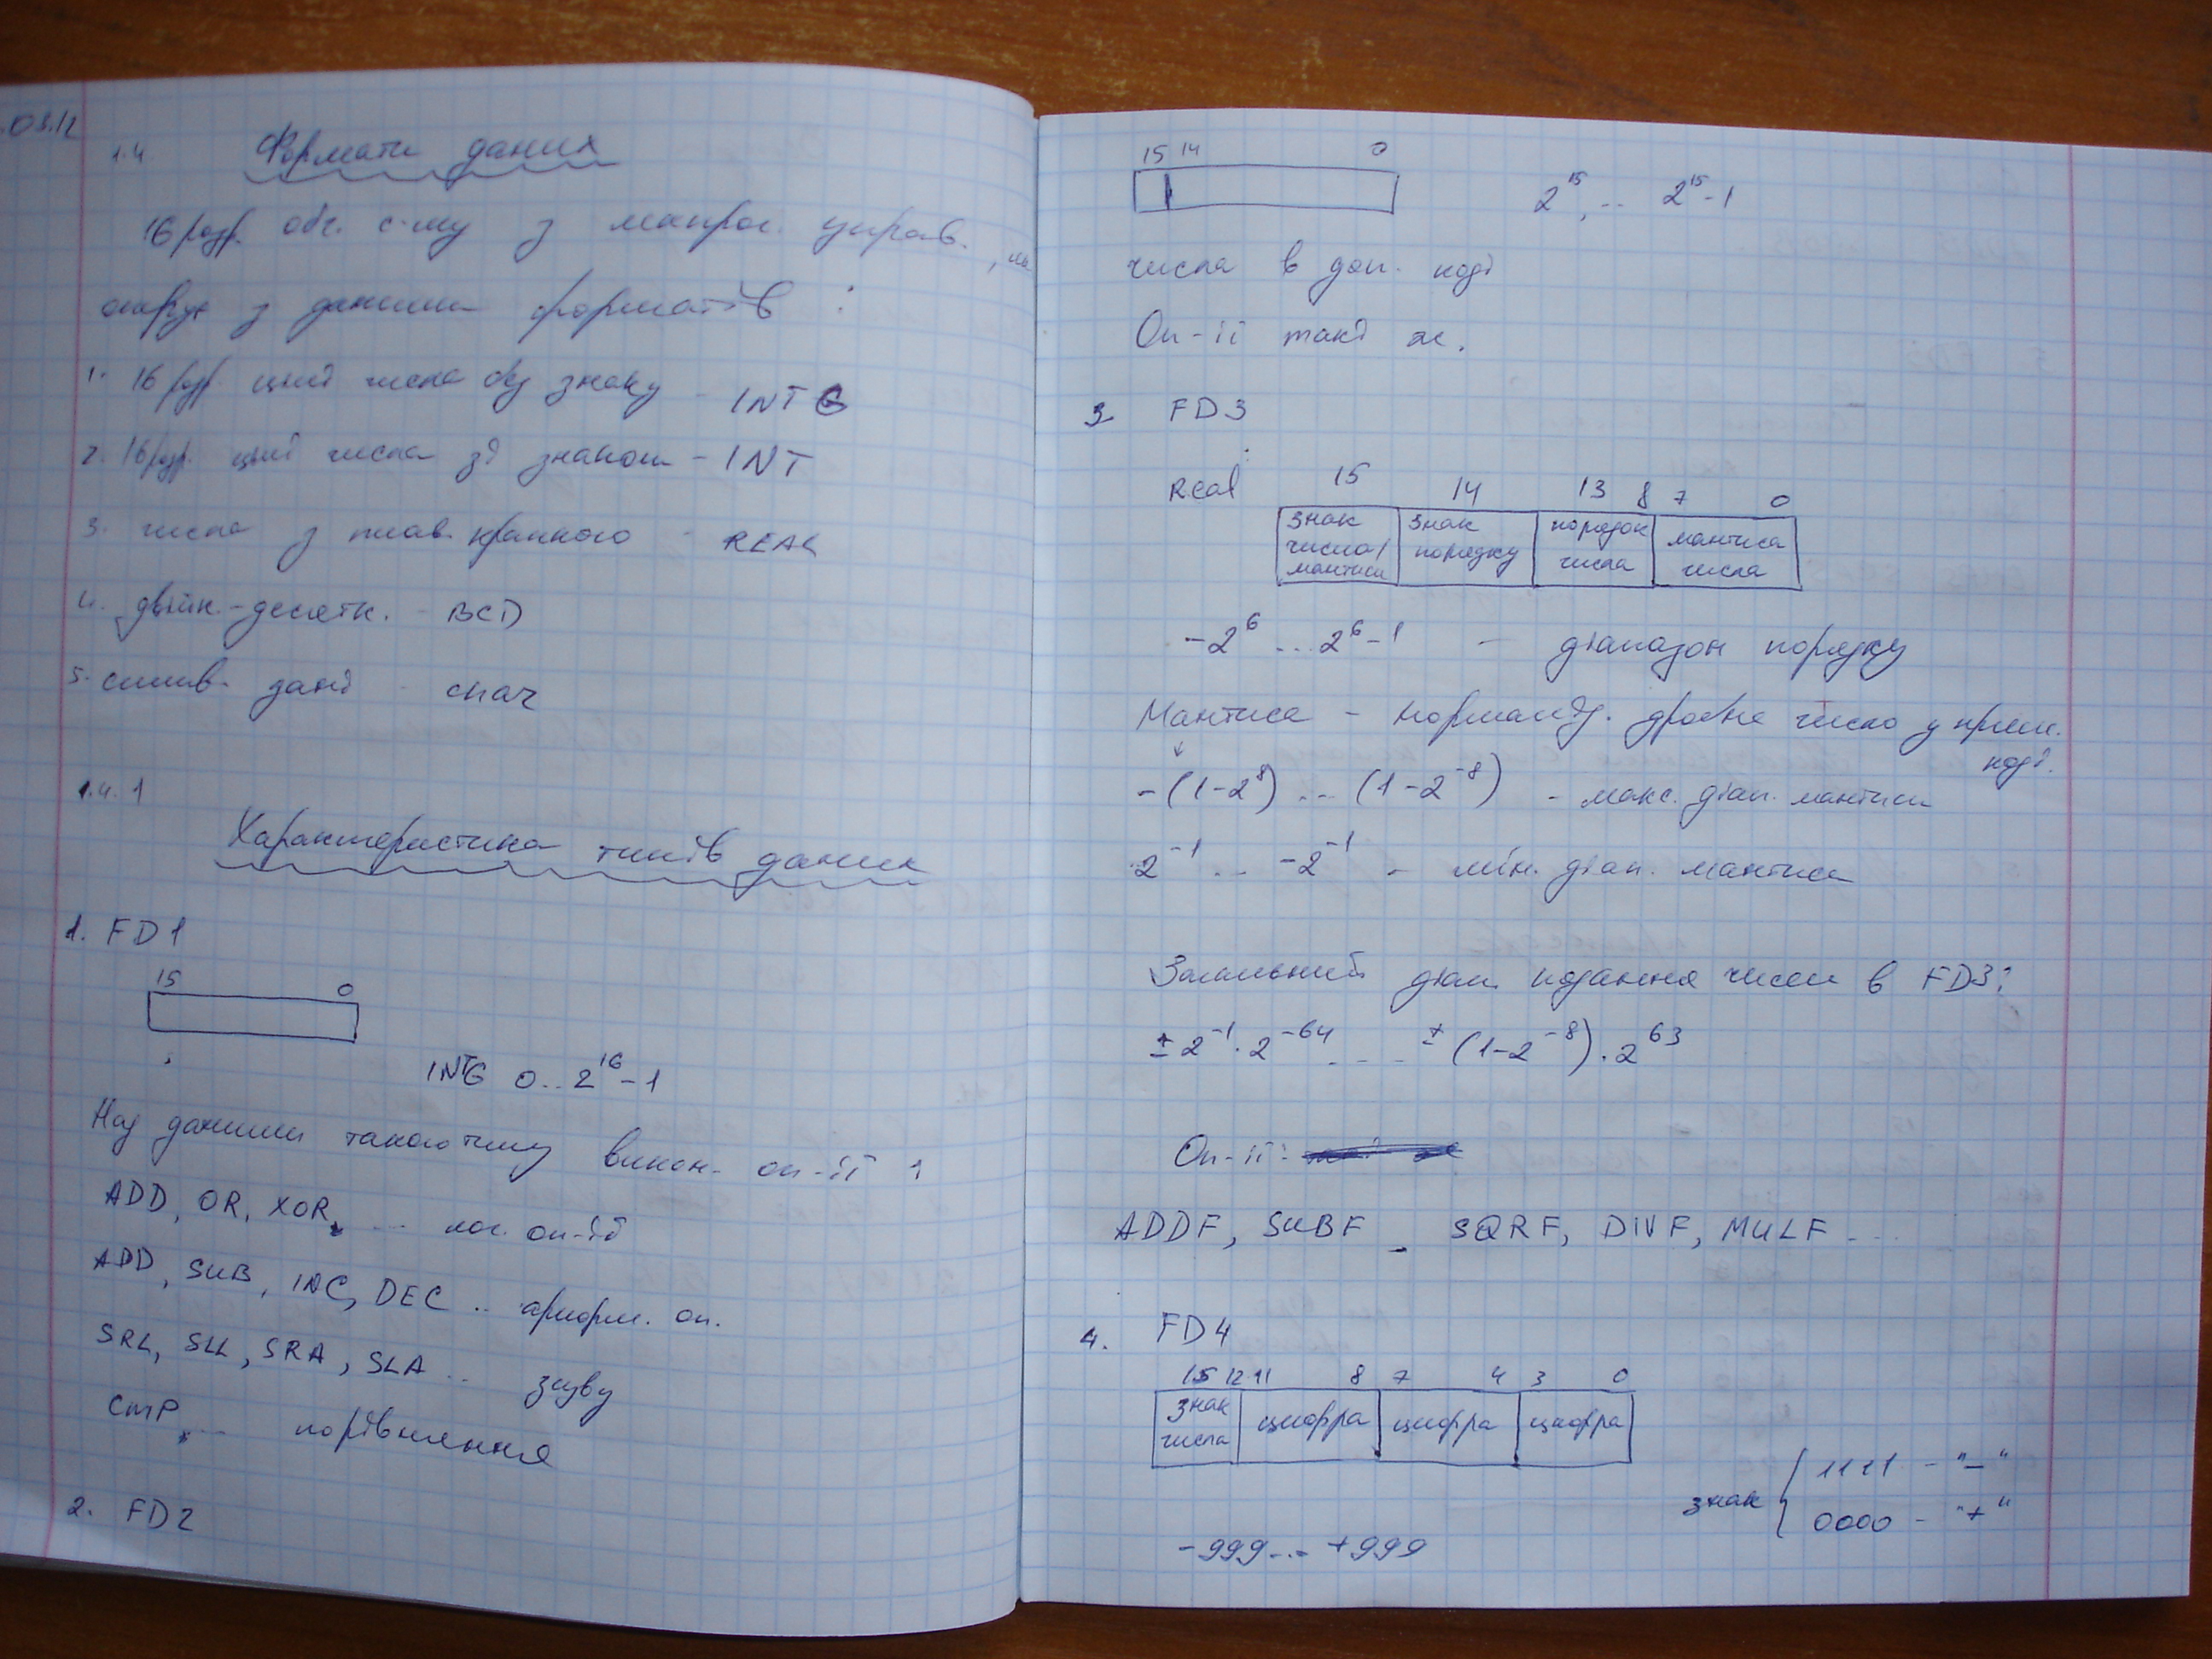 03.12
1.4 Формати даних
16 розр. обч. с-му з мікрог. управ.,
оперує з даними форматів :
1. 16 розр. цілі числа без знаку - INTG
2. 16 розр. цілі числа зі знаком - INT
3. числа з плав. крапкою - REAL
4. двійк.-десятк. - BCD
5. симв. дані - CHAR
1.4.1
Характеристика типів даних
1. FD1
15 0
INTG 0..2^16-1
Над даними такого типу викон. оп-ії :
ADD, OR, XOR, ... лог. оп-ії
ADD, SUB, INC, DEC .. арифм. оп.
SRL, SLL, SRA, SLA .. зсуву
CMP, ... порівняння
2. FD2
15 14 0
2^15, .. 2^15-1
числа в доп. коді
Оп-ії такі ж.
3 FD3
Real :
15 14 13 8 7 0
знак числа/мантиси знак порядку порядок числа мантиса числа
-2^6 ... 2^6-1 - діапазон порядку
Мантиса - нормаліз. дробне число у прям.
коді.
-(1-2^8) .. (1-2^-8) - макс. діап. мантиси
2^-1 .. -2^-1 - мін. діап. мантиси
Загальний діап. подання чисел в FD3:
±2^-1·2^-64 ... ±(1-2^-8)·2^63
Оп-ії:
ADDF, SUBF, SQRF, DIVF, MULF ...
4. FD4
15 12 11 8 7 4 3 0
знак числа цифра цифра цифра
знак { 1111 - "-"
0000 - "+"
-999... +999